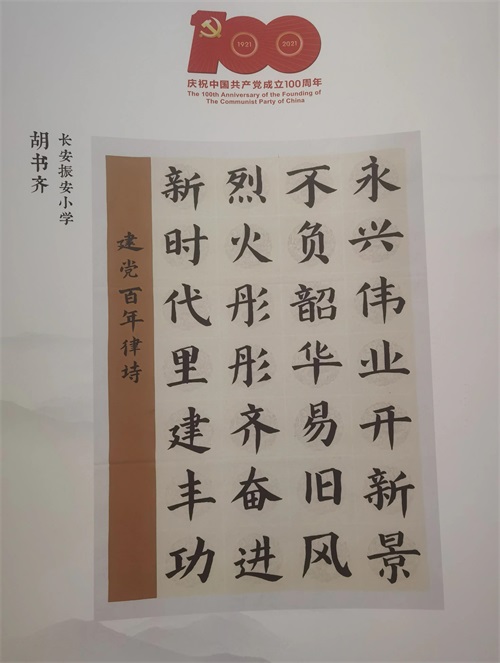 100
1921
2021
庆祝中国共产党成立100周年
The 100th Anniversary of the Founding of
The Communist Party of China
长安振安小学
胡书齐
永兴伟业开新景
不负韶华易旧风
烈火彤彤齐奋进
新时代里建丰功
建党百年律诗